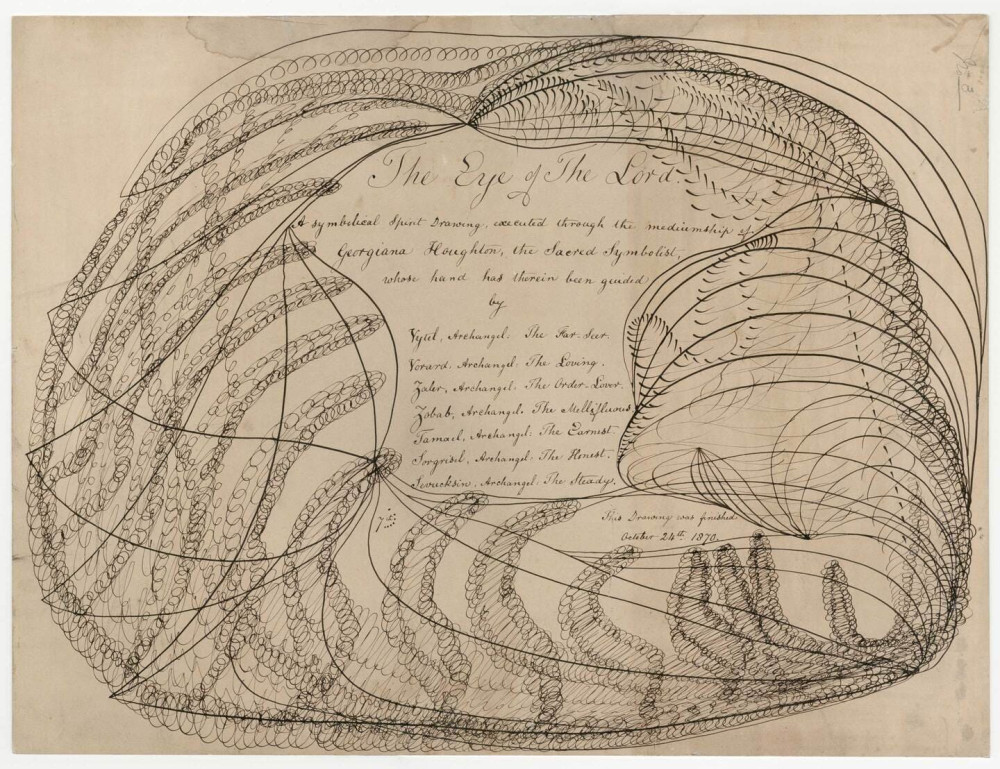 The Eye of The Lord.
A symbolical Spirit Drawing, executed through the mediumship of
Georgiana Houghton, the Sacred Symbolist,
whose hand has therein been guided
by
Vytel, Archangel. The Far-Seer.
Vorard, Archangel. The Loving.
Zaler, Archangel. The Order-Lover.
Zobab, Archangel. The Mellifluous.
Tamael, Archangel. The Earnest.
Sorgrisel, Archangel. The Honest.
Sevucksin, Archangel. The Steady.
This Drawing was finished
October 24th 1870.